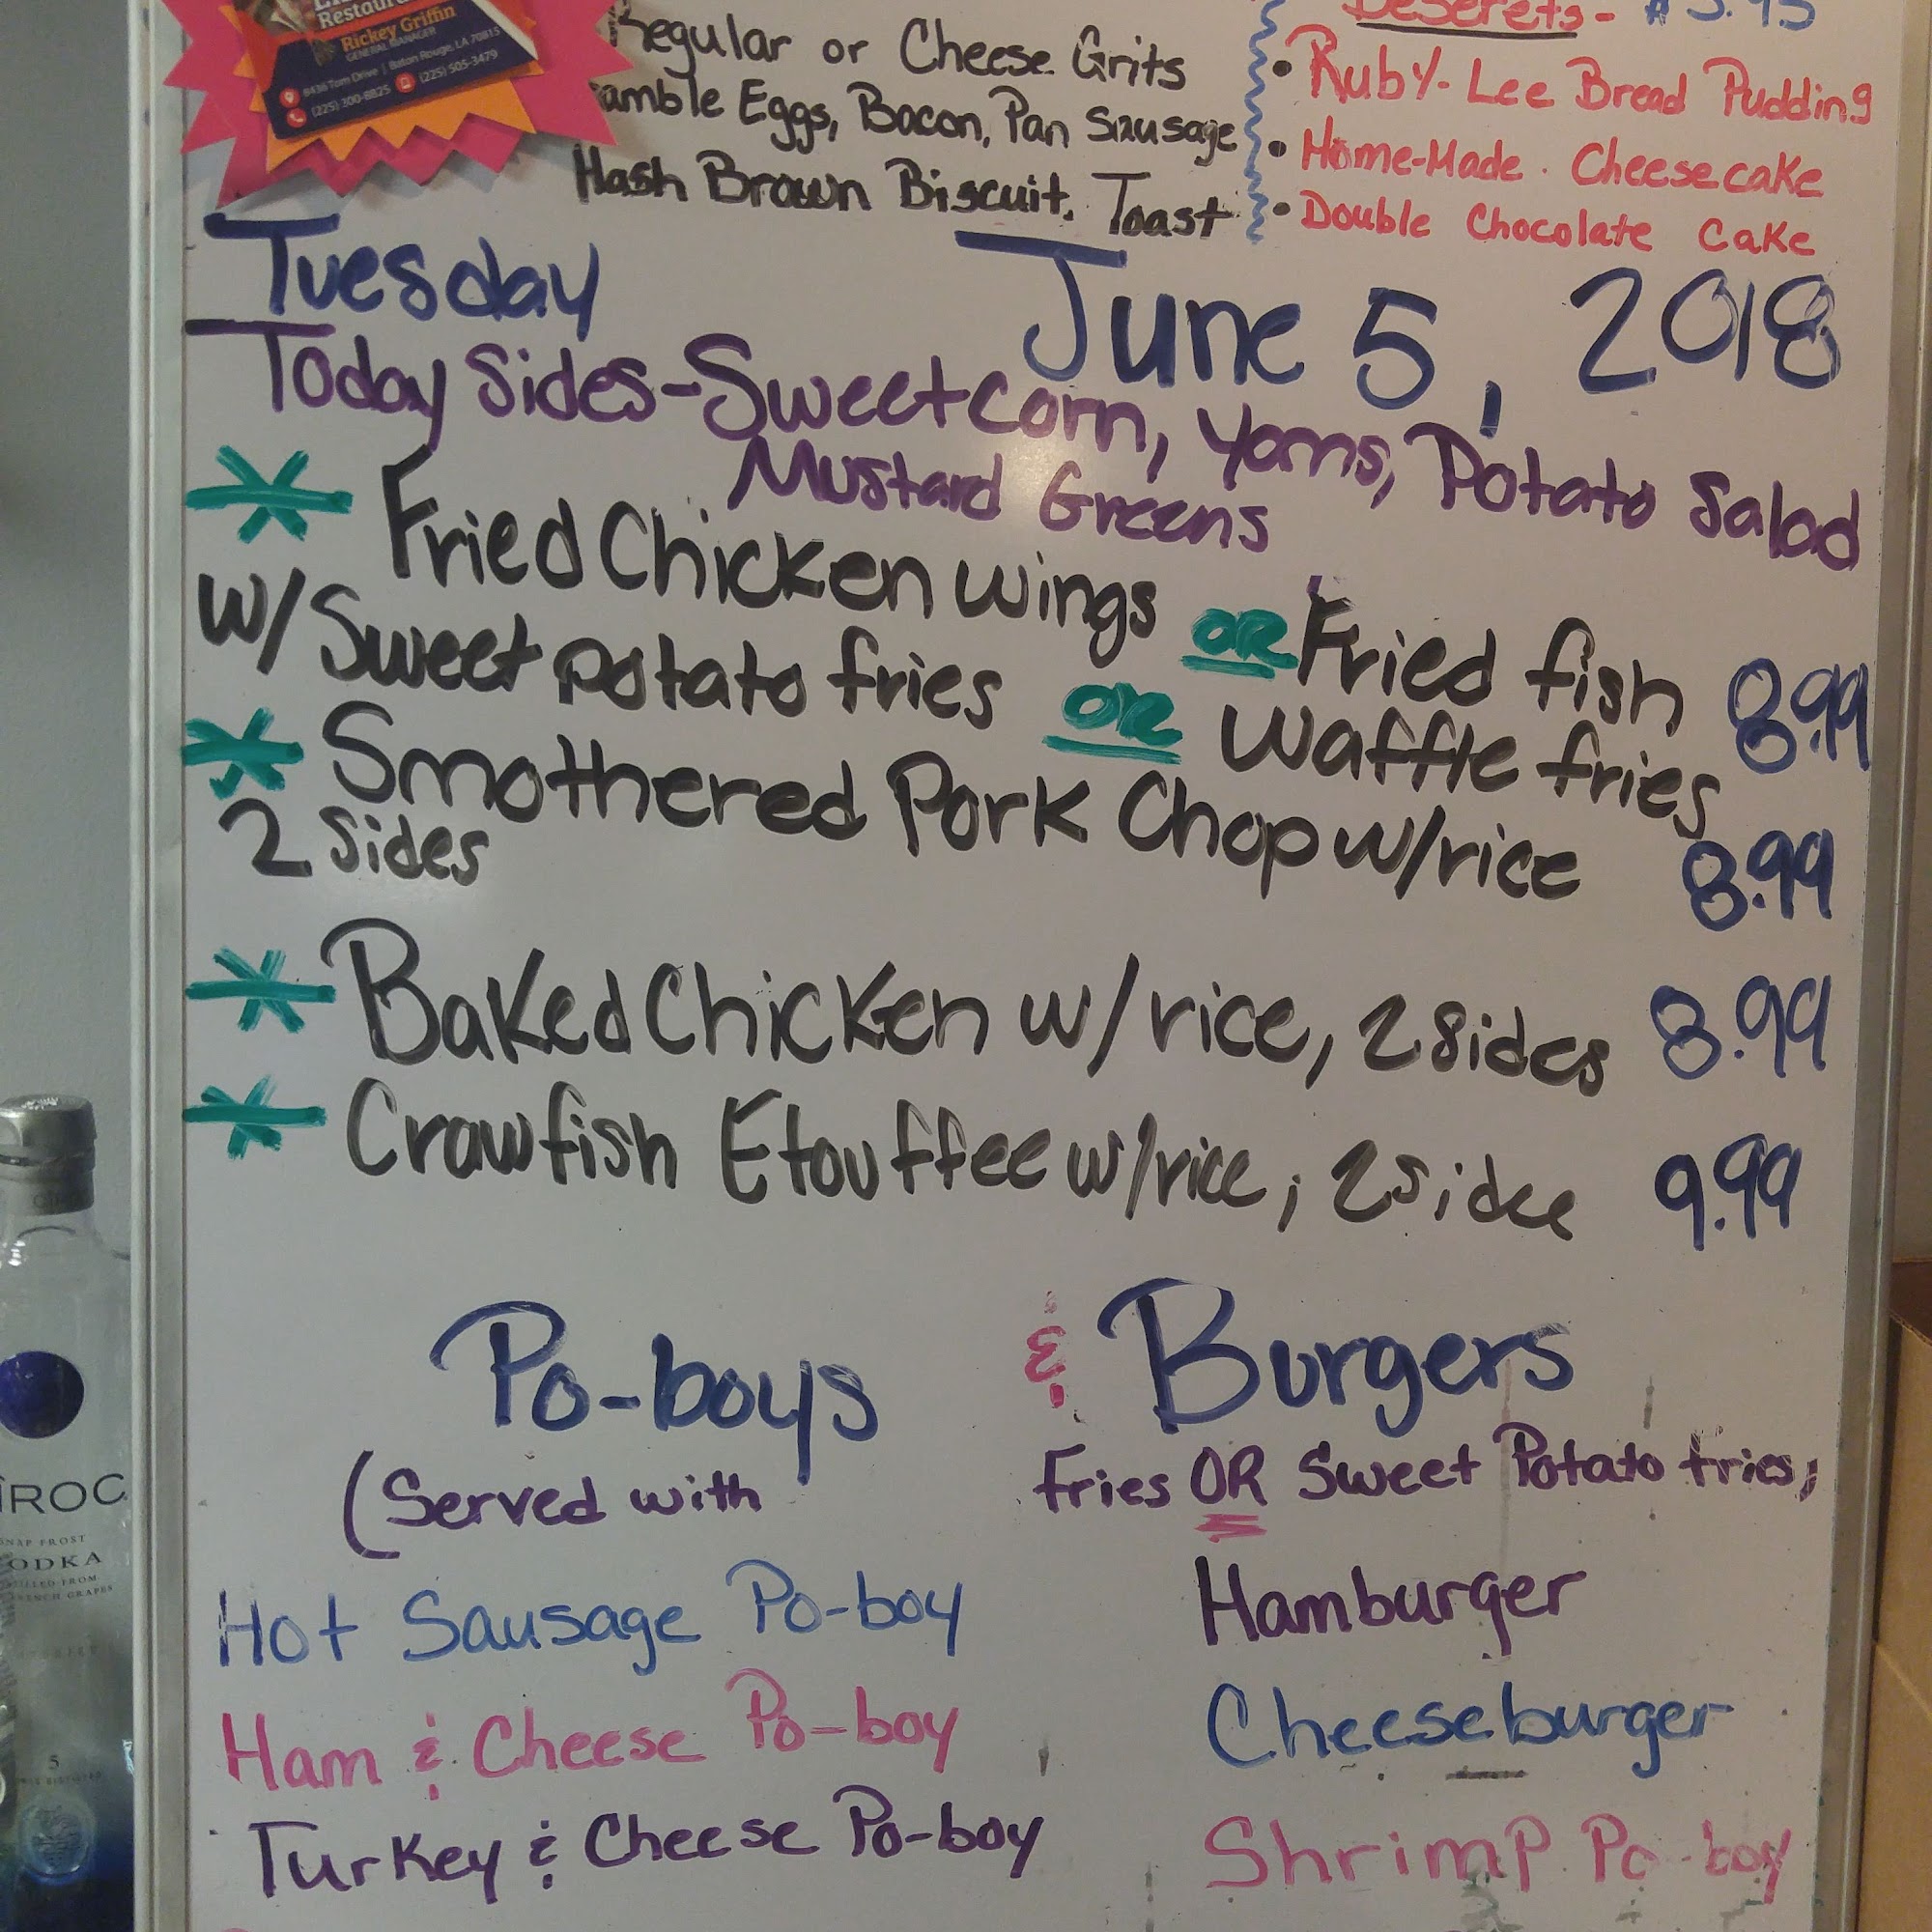 Restaurant
Rickey Griffin
GENERAL MANAGER
9436 Tom Drive | Baton Rouge, LA 70815
(225) 300-8825 (225) 505-3479
Regular or Cheese Grits
amble Eggs, Bacon, Pan Sausage
Hash Brown Biscuit, Toast
Deserets-
• Ruby-Lee Bread Pudding
• Home-Made. Cheesecake
• Double Chocolate Cake
Tuesday June 5, 2018
Today Sides-Sweet corn, Yams, Potato Salad
Mustard Greens
* Fried Chicken wings OR Fried fish 8.99
w/ Sweet potato fries OR Waffle fries
* Smothered Pork Chop w/rice 8.99
2 Sides
* Baked Chicken w/rice, 2 Sides 8.99
* Crawfish Etouffee w/rice, 2 sides 9.99
Po-boys & Burgers
(Served with Fries OR Sweet Potato fries,
Hot Sausage Po-boy Hamburger
Ham & Cheese Po-boy Cheeseburger
Turkey & Cheese Po-boy Shrimp Po-boy
ÎROC
SNAP FROST
ODKA